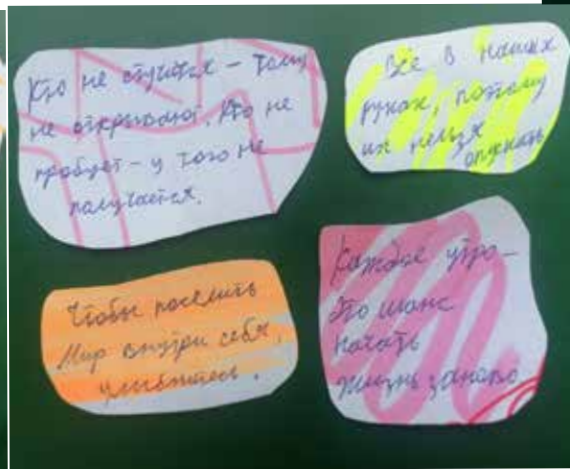 Кто не стучится – тому
не открывают. Кто не
пробует – у того не
получается.
Всё в наших
руках, потому
их нельзя
опускать
Чтобы поселить
Мир внутри себя,
улыбнитесь.
Каждое утро –
это шанс
начать
жизнь заново